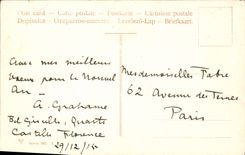 Post card. – Carte postale – Postkarte – Cartolina postale
Dopisnice – Levelező-Lap – Briefkaart.
Avec mes meilleurs
vœux pour le Nouvel
An
A. Grahame
Quarto
Castello Florence
29/12/15
Mesdemoiselles Fabre
62 Avenue des Ternes
Paris